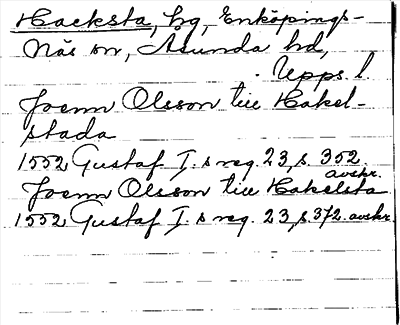 Hacksta, hg, Enköpings-
Näs sn, Åsunda hd,
Upps. l.
Joenn Olsson till Hakel-
stada
1552 Gustaf I. s reg. 23, s. 352.
avskr.
Joenn Olsson till Hakelsta
1552 Gustaf I. s reg. 23, s. 372. avskr.